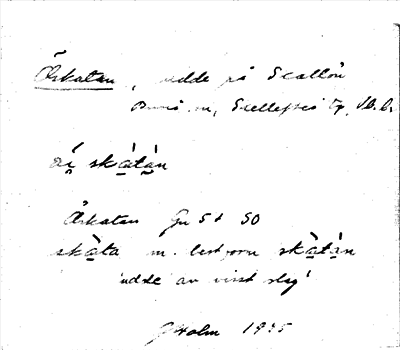 Åskatan, udde på Scallön
Bureå sn, Skellefteå tg, Vb.l.
skàtàn
Åskatan Gu 5 d SO
skàta m. best. form skàtàn
'udde av visst slag'
GHolm 1935